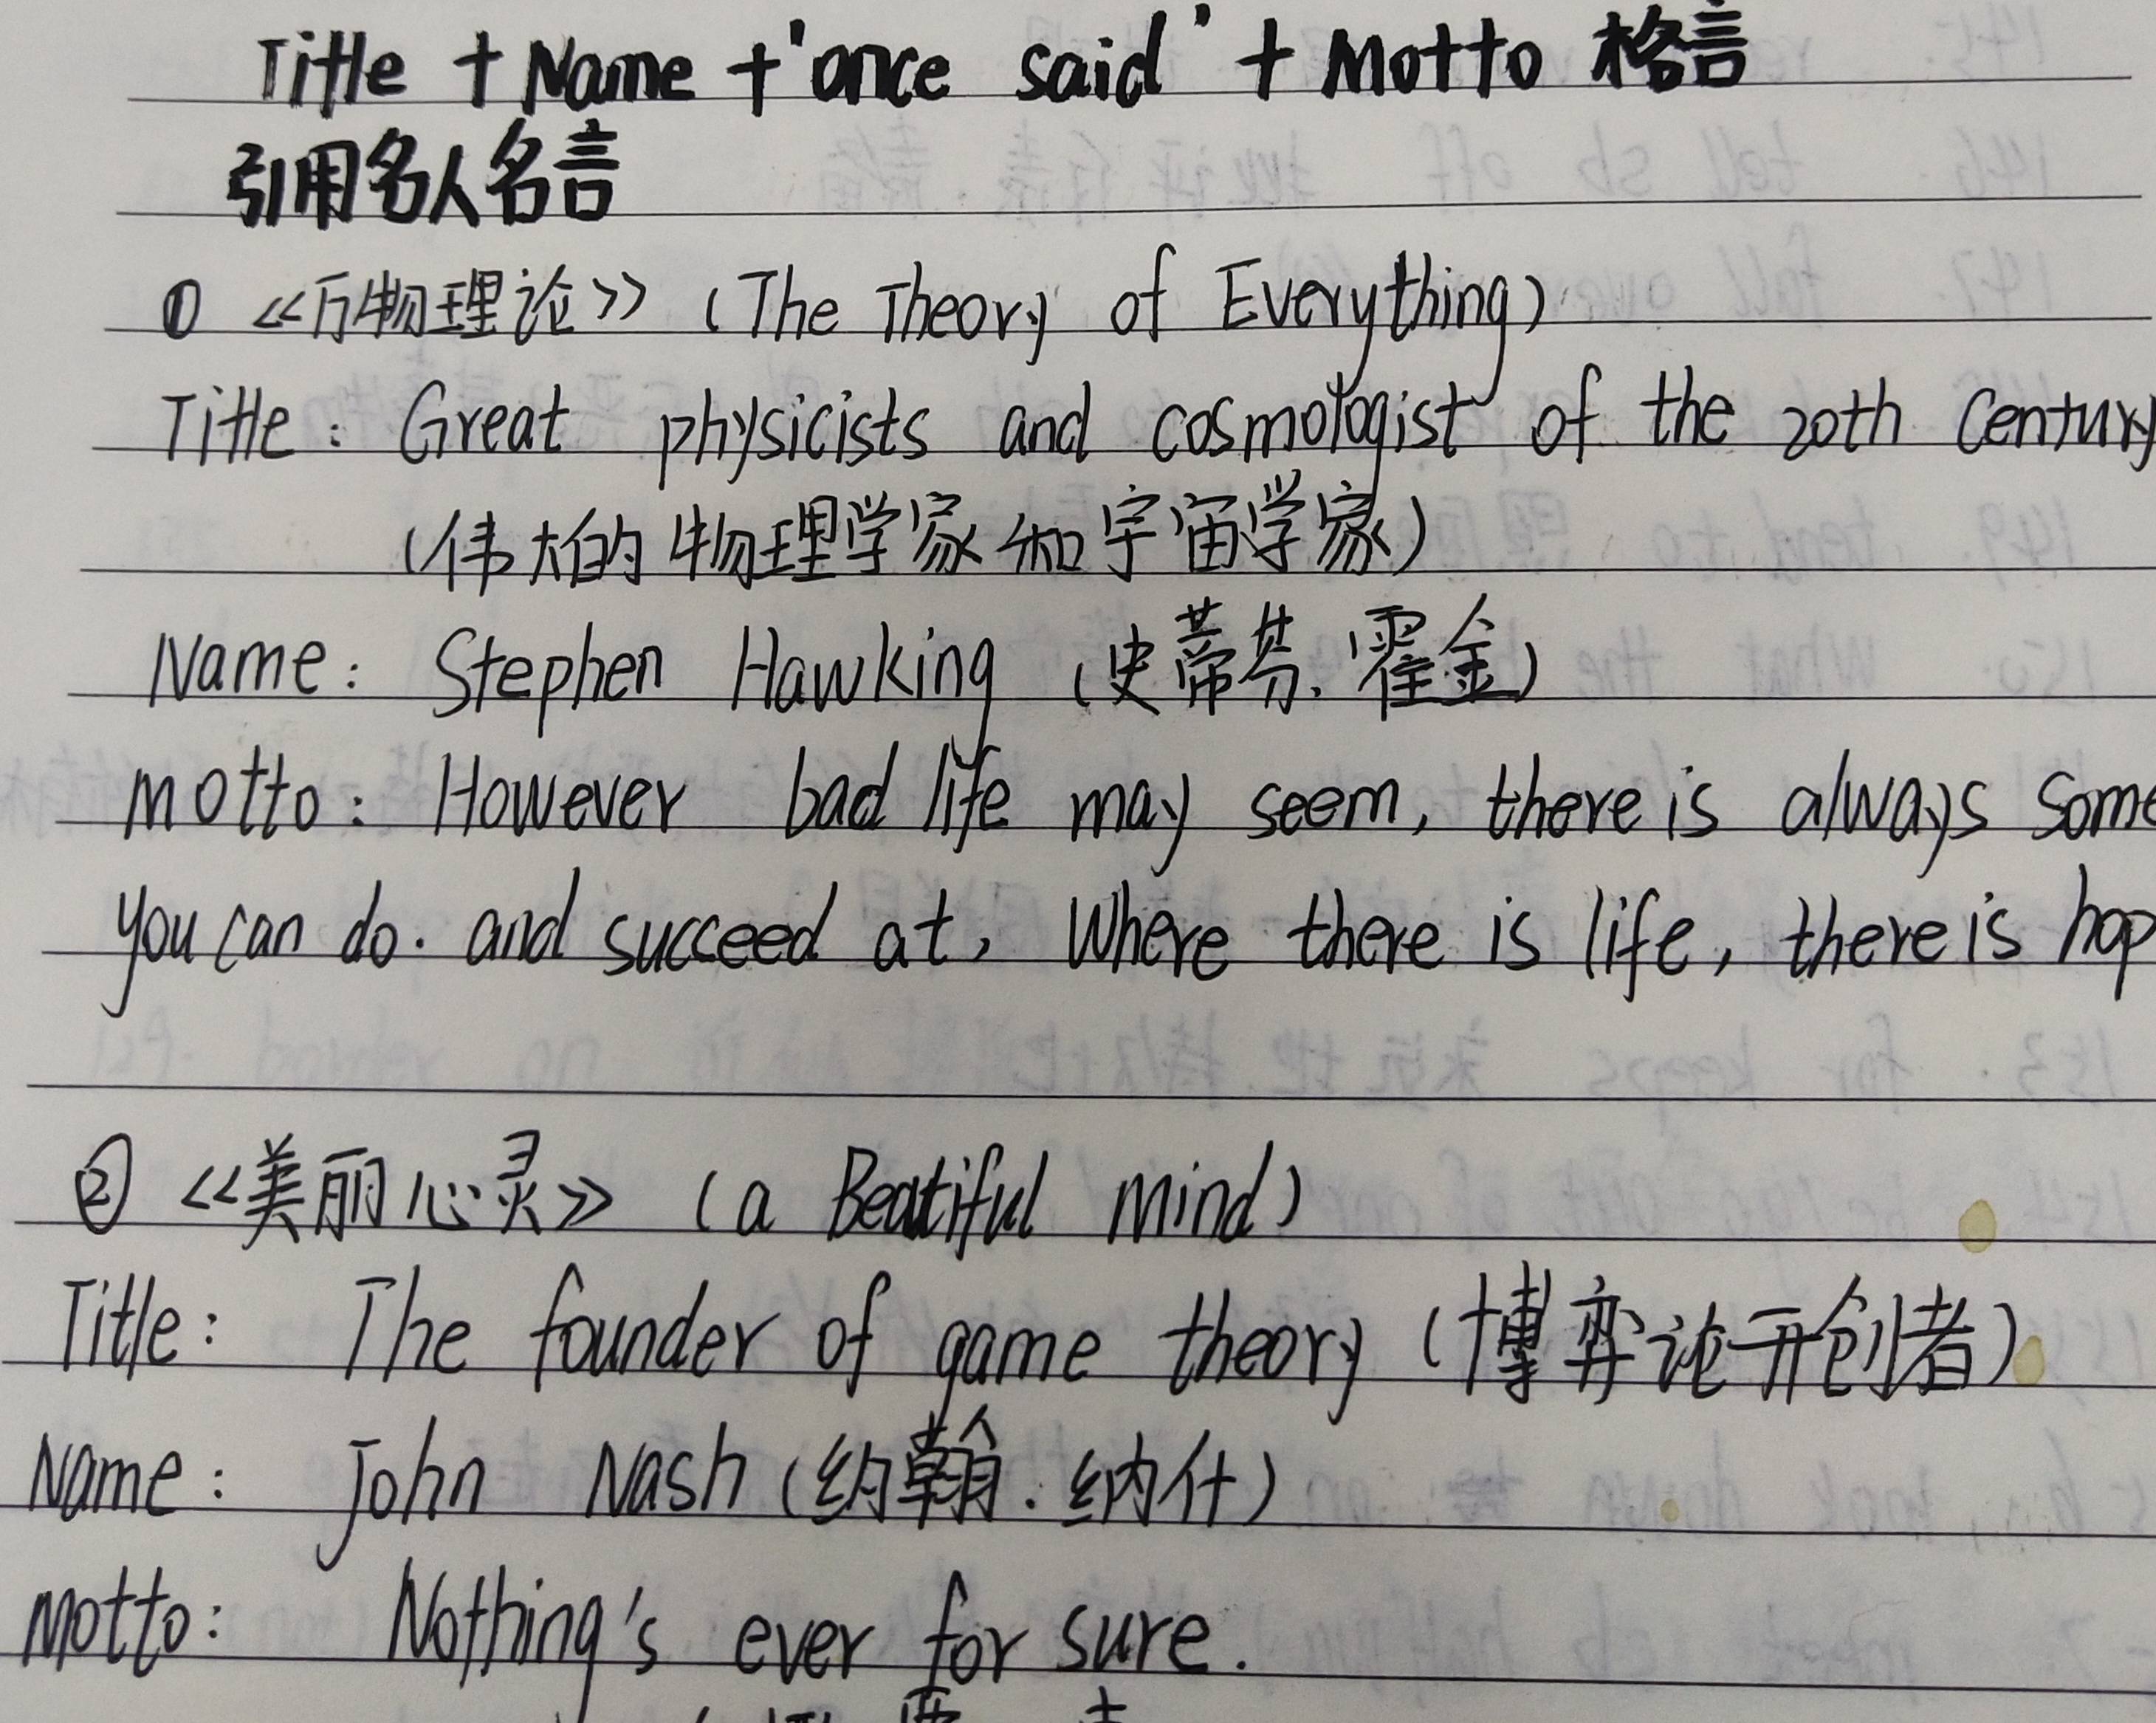 Title + Name + 'once said' + Motto 格言
引用名人名言
① 《万物理论》 (The Theory of Everything)
Title: Great physicists and cosmologist of the 20th Century
(伟大的物理学家和宇宙学家)
Name: Stephen Hawking (史蒂芬.霍金)
motto: However bad life may seem, there is always some
you can do. and succeed at, Where there is life, there is hop
② 《美丽心灵》 (a Beatiful mind)
Title: The founder of game theory (博弈论开创者)
Name: John Nash (约翰.纳什)
motto: Nothing's ever for sure.